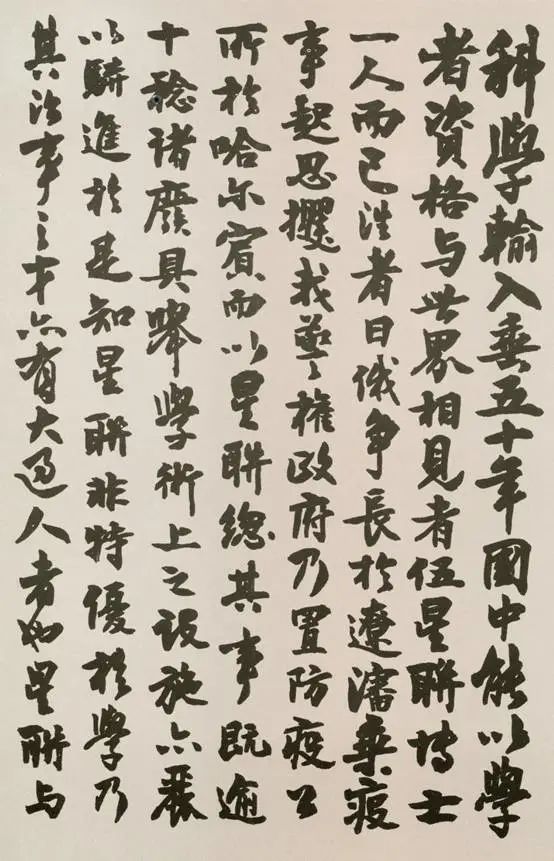 科學輸入垂五十年國中能以學
者資格与世界相見者伍星聯博士
一人而已往者日俄爭長於遼瀋乘疫
事起思攫我權政府乃置防疫公
所於哈尔賓而以星聯總其事既逾
十稔諸廢具舉學術上之設施亦
以進於是知星聯非特優於學乃
其治事之才亦有大過人者如星聯与